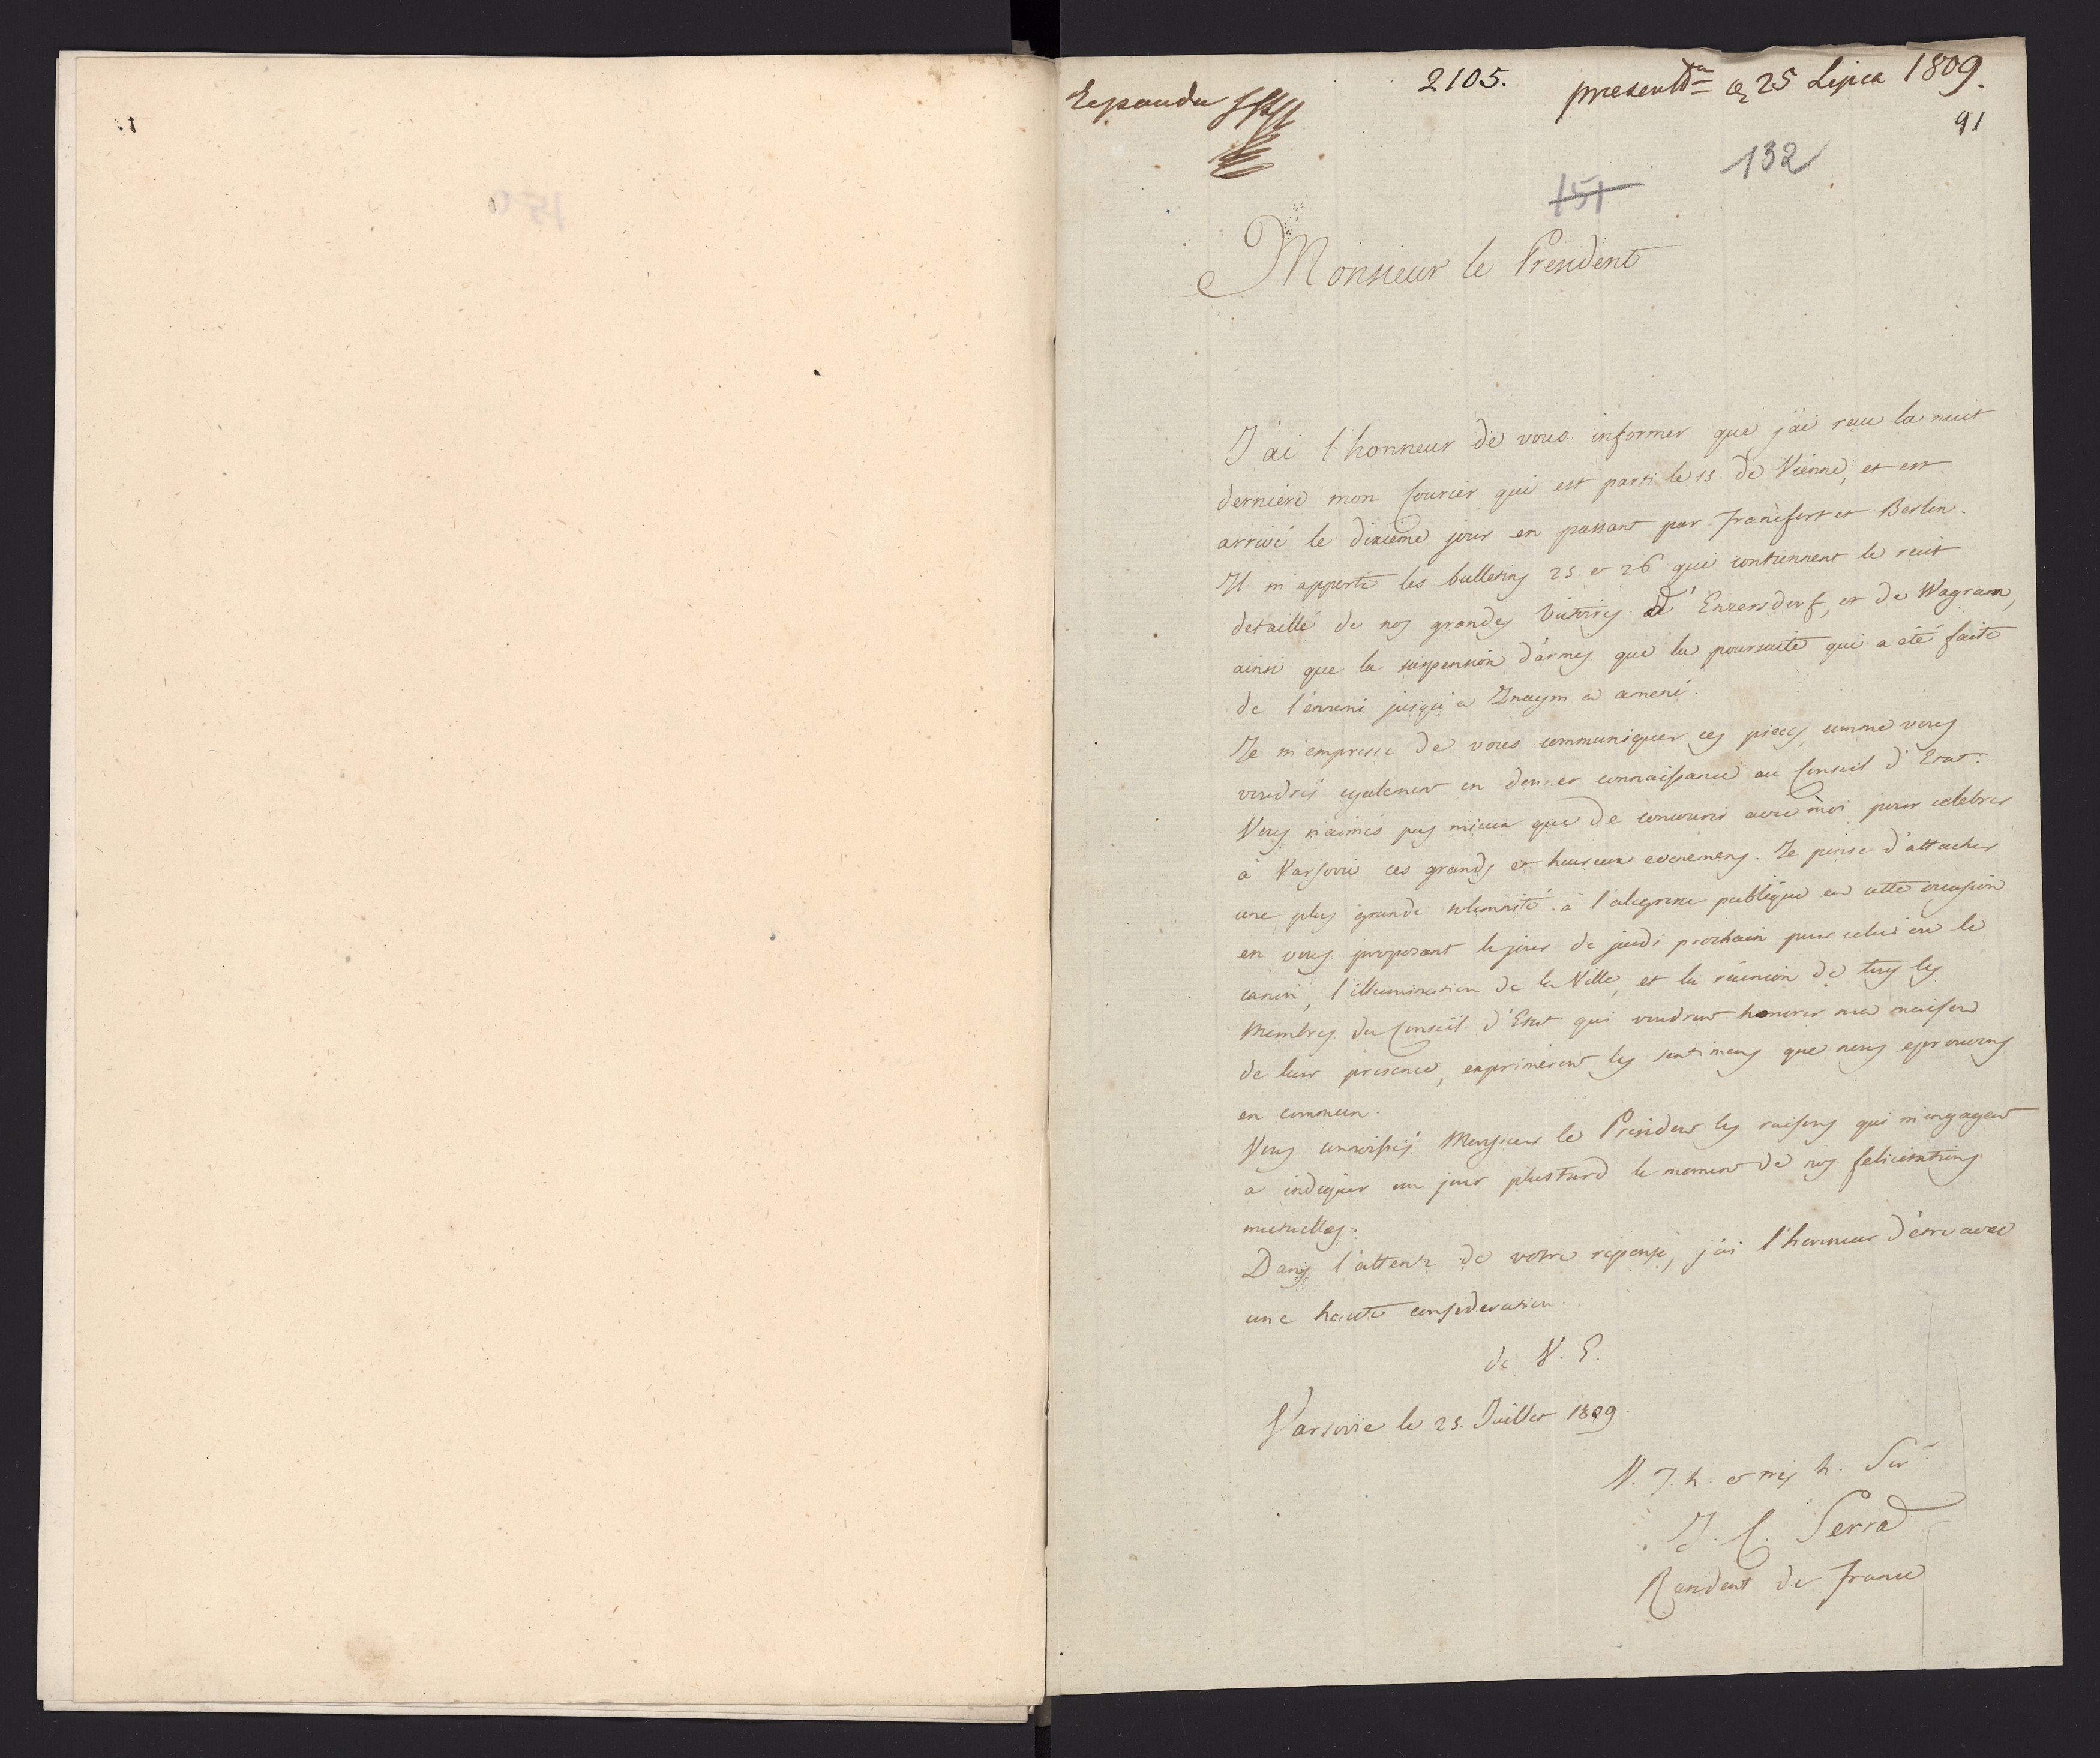 Repondu
2105.
present. 25 Lipca 1809.
91
132
151
Monsieur le President
J'ai l'honneur de vous informer que j'ai reçu la nuit
derniere mon Courier qui est parti le 15 de Vienne, et est
arrivé le dixieme jour en passant par Francfort et Berlin.
Il m'apporte les bulletins 25 et 26 qui contiennent le recit
detaillé de nos grandes victoires d'Enzersdorf, et de Wagram,
ainsi que la suspension d'armes que la poursuite qui a été faite
de l'ennemi jusqu'a Znaym a amené.
Je m'empresse de vous communiquer ces pieces, comme vous
voudrés egalement en donner connaissance au Conseil d'Etat.
Vous n'aimés pas mieux que de concourir avec moi pour celebrer
à Varsovie ces grands et heureux evenemens. Je pense d'attacher
une plus grande solemnité à l'alegresse publique en cette occasion
en vous proposant le jour de jeudi prochain pour celui ou le
canon, l'illumination de la Ville, et la reunion de tous les
Membres du Conseil d'Etat qui voudront honorer ma maison
de leur presence, exprimeront les sentimens que nous eprouvons
en commun.
Vous connoissés Monsieur le President les raisons qui m'engagent
a indiquer un jour plus tard le moment de nos felicitations
mutuelles.
Dans l'attente de votre reponse, j'ai l'honneur d'etre avec
une haute consideration.
de V. E.
Varsovie le 25. Juillet 1809.
V. T. h. et tres h. Ser
J. C. Serra
Resident de France